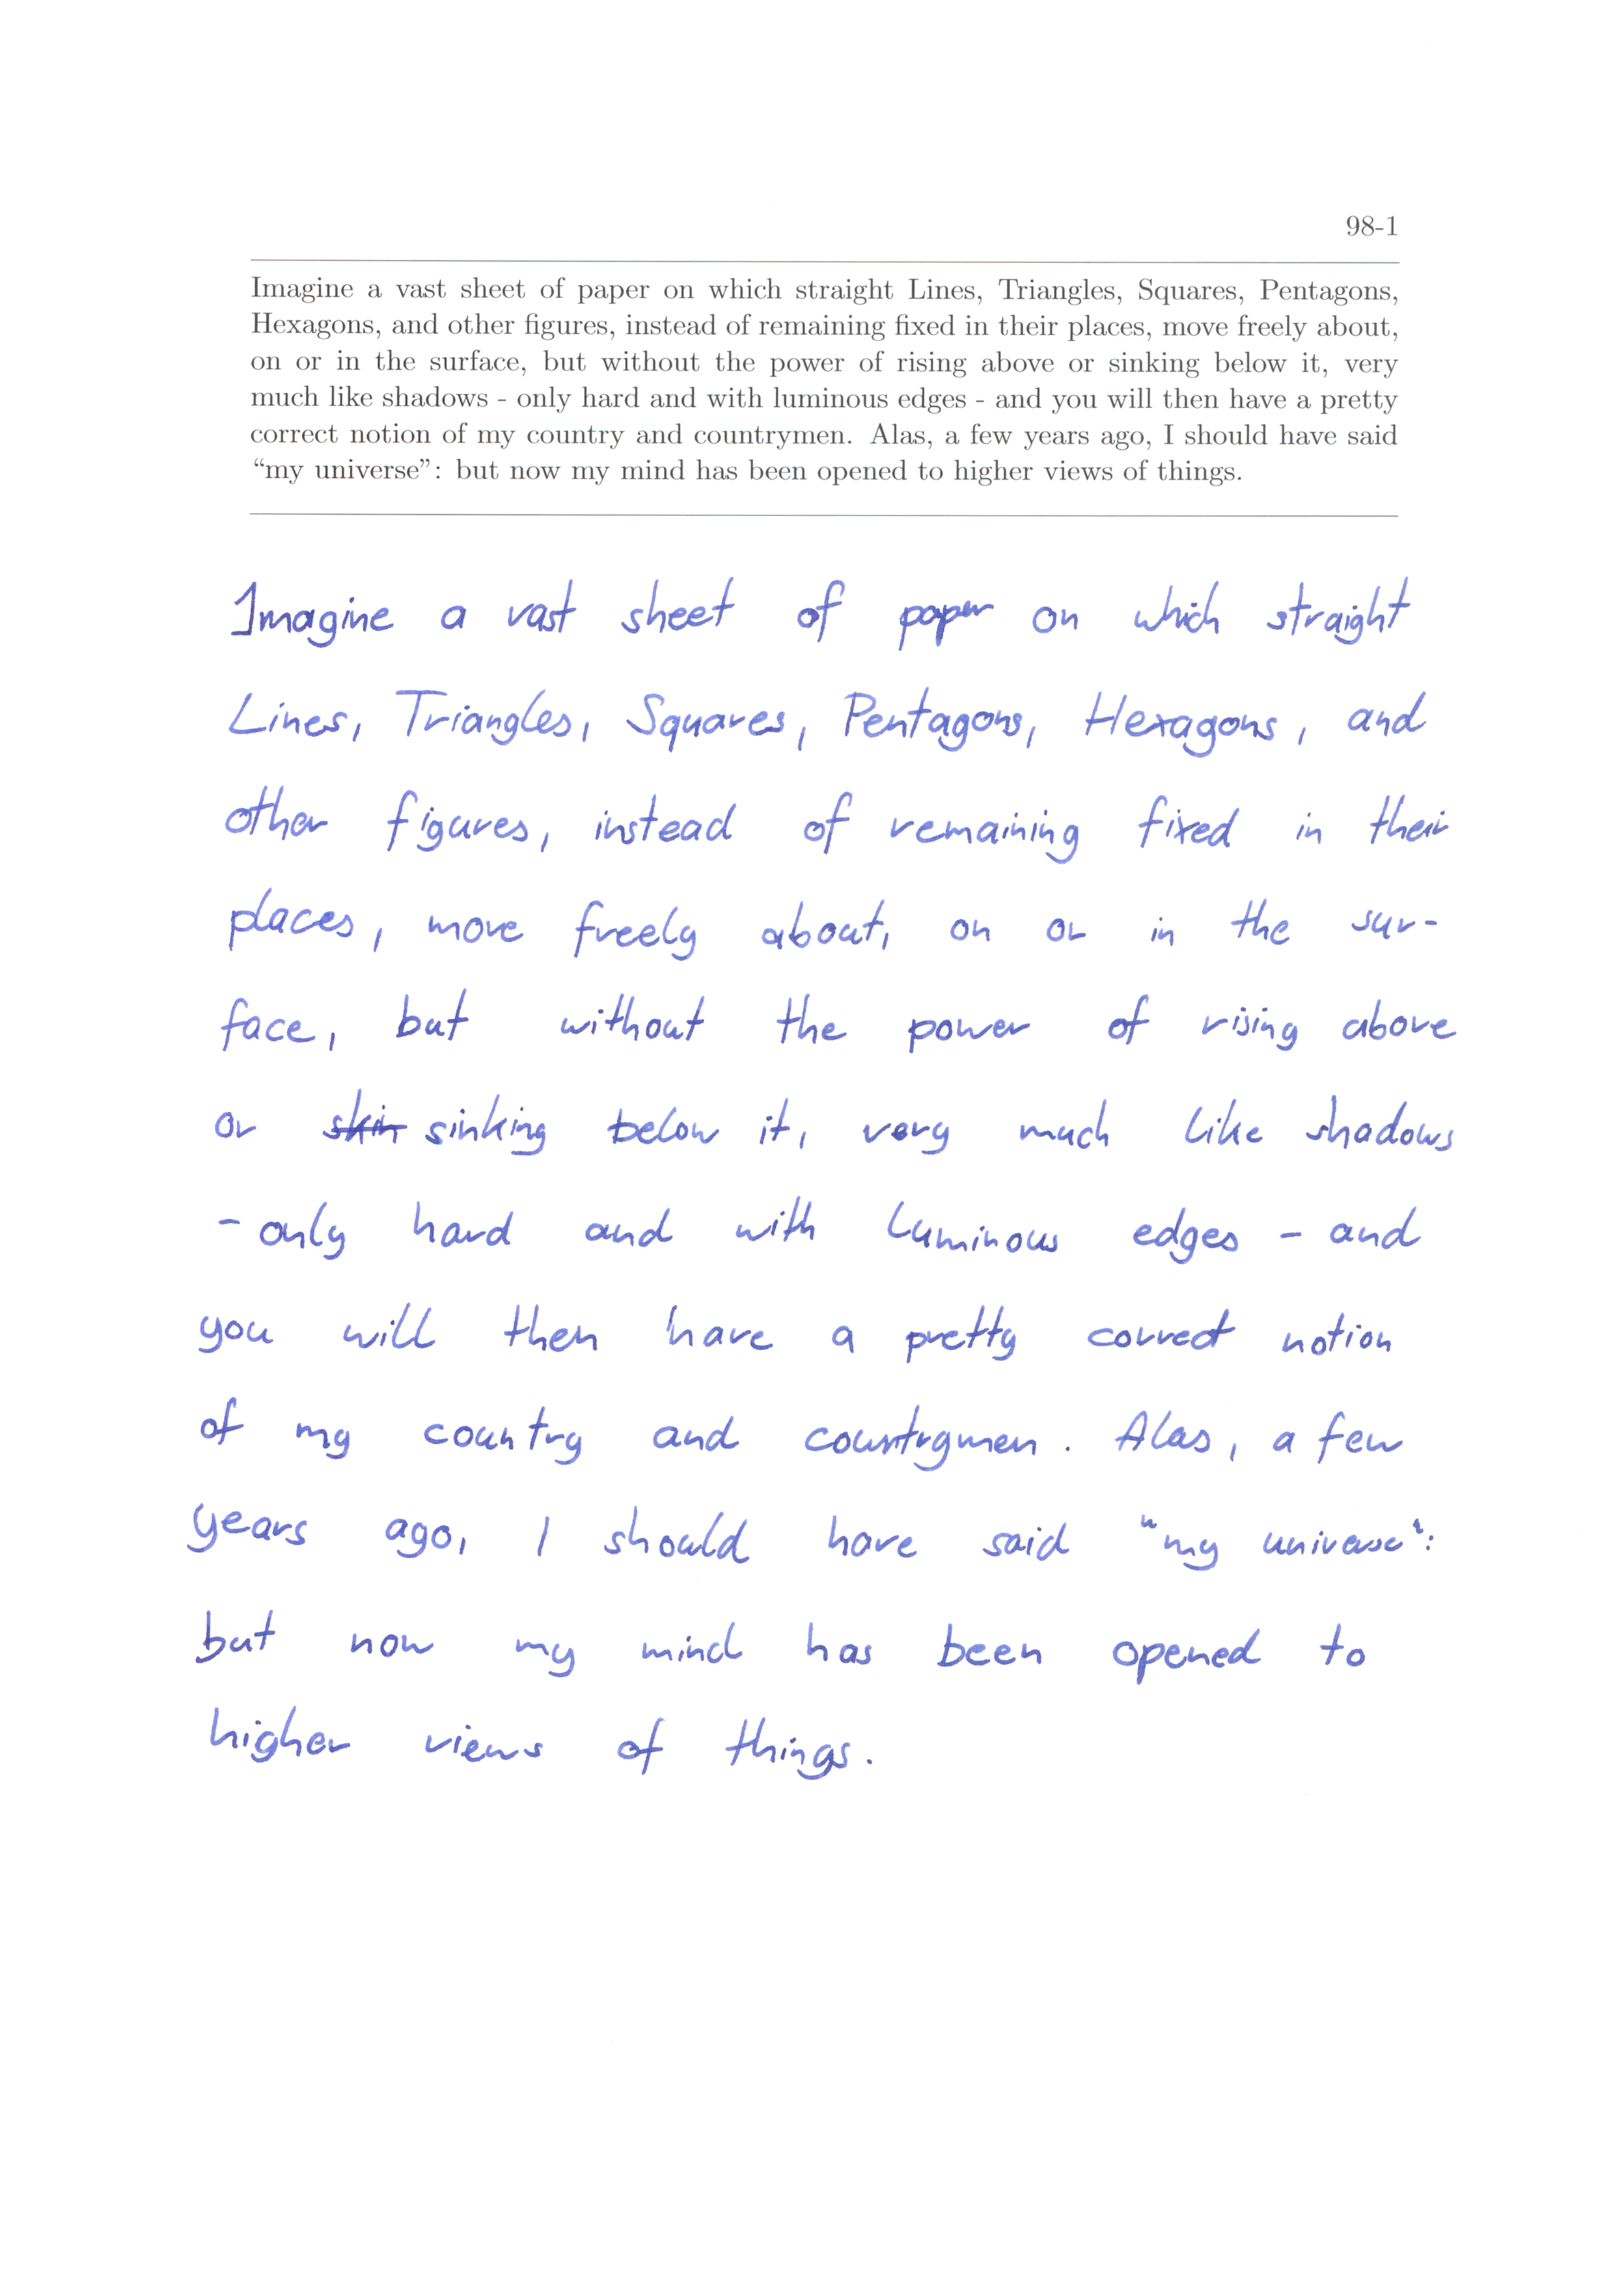 98-1
Imagine a vast sheet of paper on which straight Lines, Triangles, Squares, Pentagons,
Hexagons, and other figures, instead of remaining fixed in their places, move freely about,
on or in the surface, but without the power of rising above or sinking below it, very
much like shadows - only hard and with luminous edges - and you will then have a pretty
correct notion of my country and countrymen. Alas, a few years ago, I should have said
“my universe”: but now my mind has been opened to higher views of things.
Imagine a vast sheet of paper on which straight
Lines, Triangles, Squares, Pentagons, Hexagons, and
other figures, instead of remaining fixed in their
places, move freely about, on or in the sur-
face, but without the power of rising above
or skin sinking below it, very much like shadows
- only hard and with luminous edges - and
you will then have a pretty correct notion
of my country and countrymen. Alas, a few
years ago, I should have said "my universe":
but now my mind has been opened to
higher views of things.